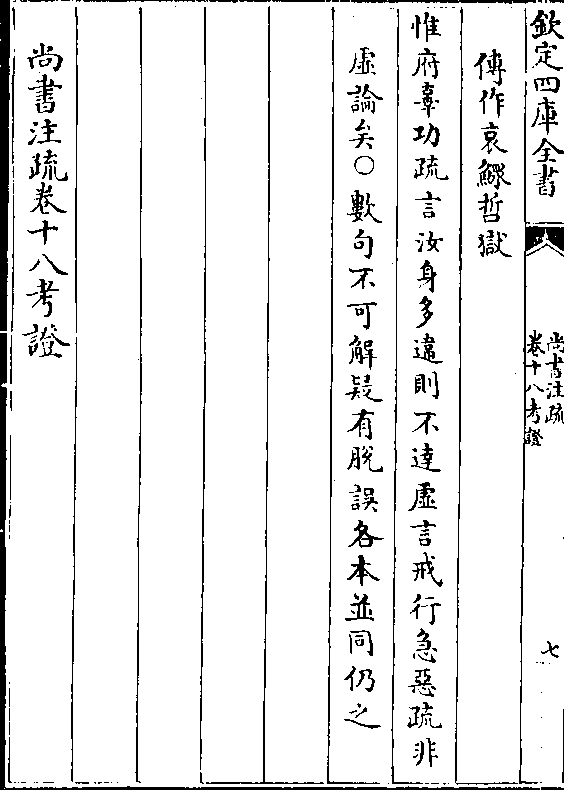 欽定四庫全書
尚書注疏
卷十八考證
七
傳作哀鰥哲獄
惟府辜功疏言汝身多違則不達虛言戒行急惡疏非
虛論矣○數句不可解疑有脫誤各本並同仍之
尚書注疏卷十八考證